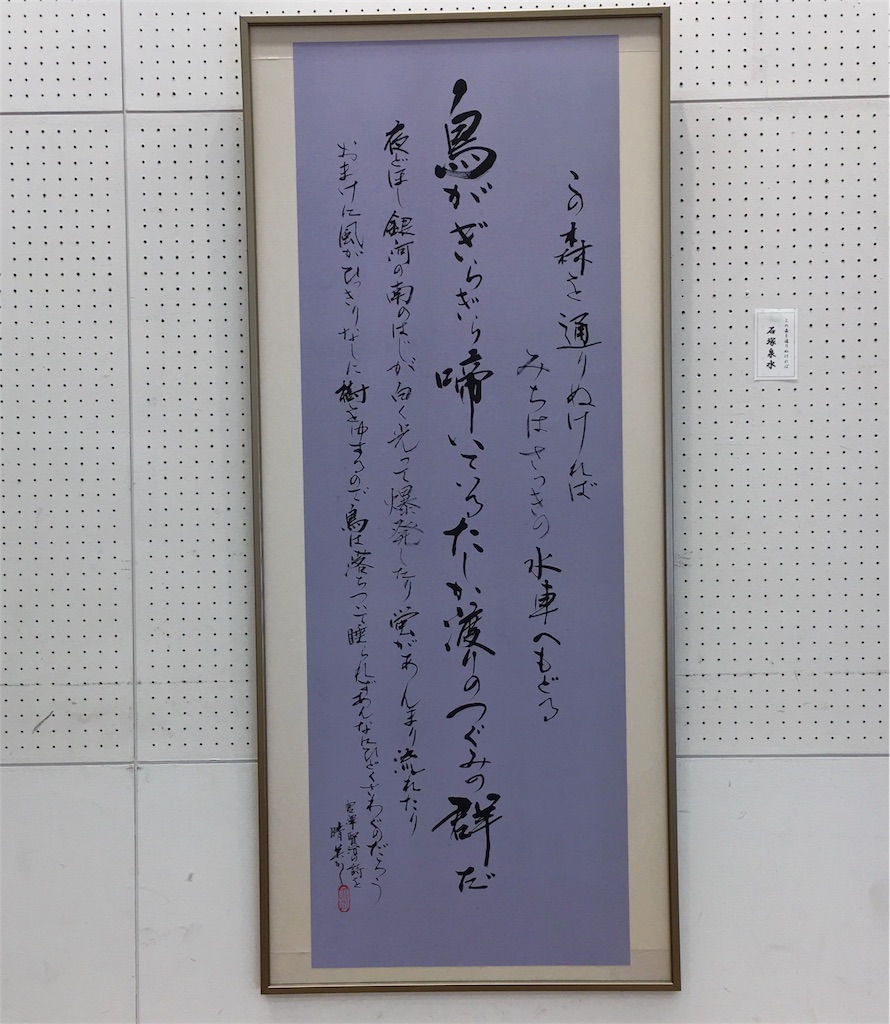 この森を通りぬければ
みちはさっきの水車へもどる
鳥がぎらぎら啼いているたしか渡りのつぐみの群だ
夜どほし銀河の南のはじが白く光って爆発したり蛍があんまり流れたり
おまけに風がひっきりなしに樹をゆするので鳥は落ちついて睡られずあんなにひどくさわぐのだろう
宮澤賢治の詩を
この森を通りぬければ
石塚泉水